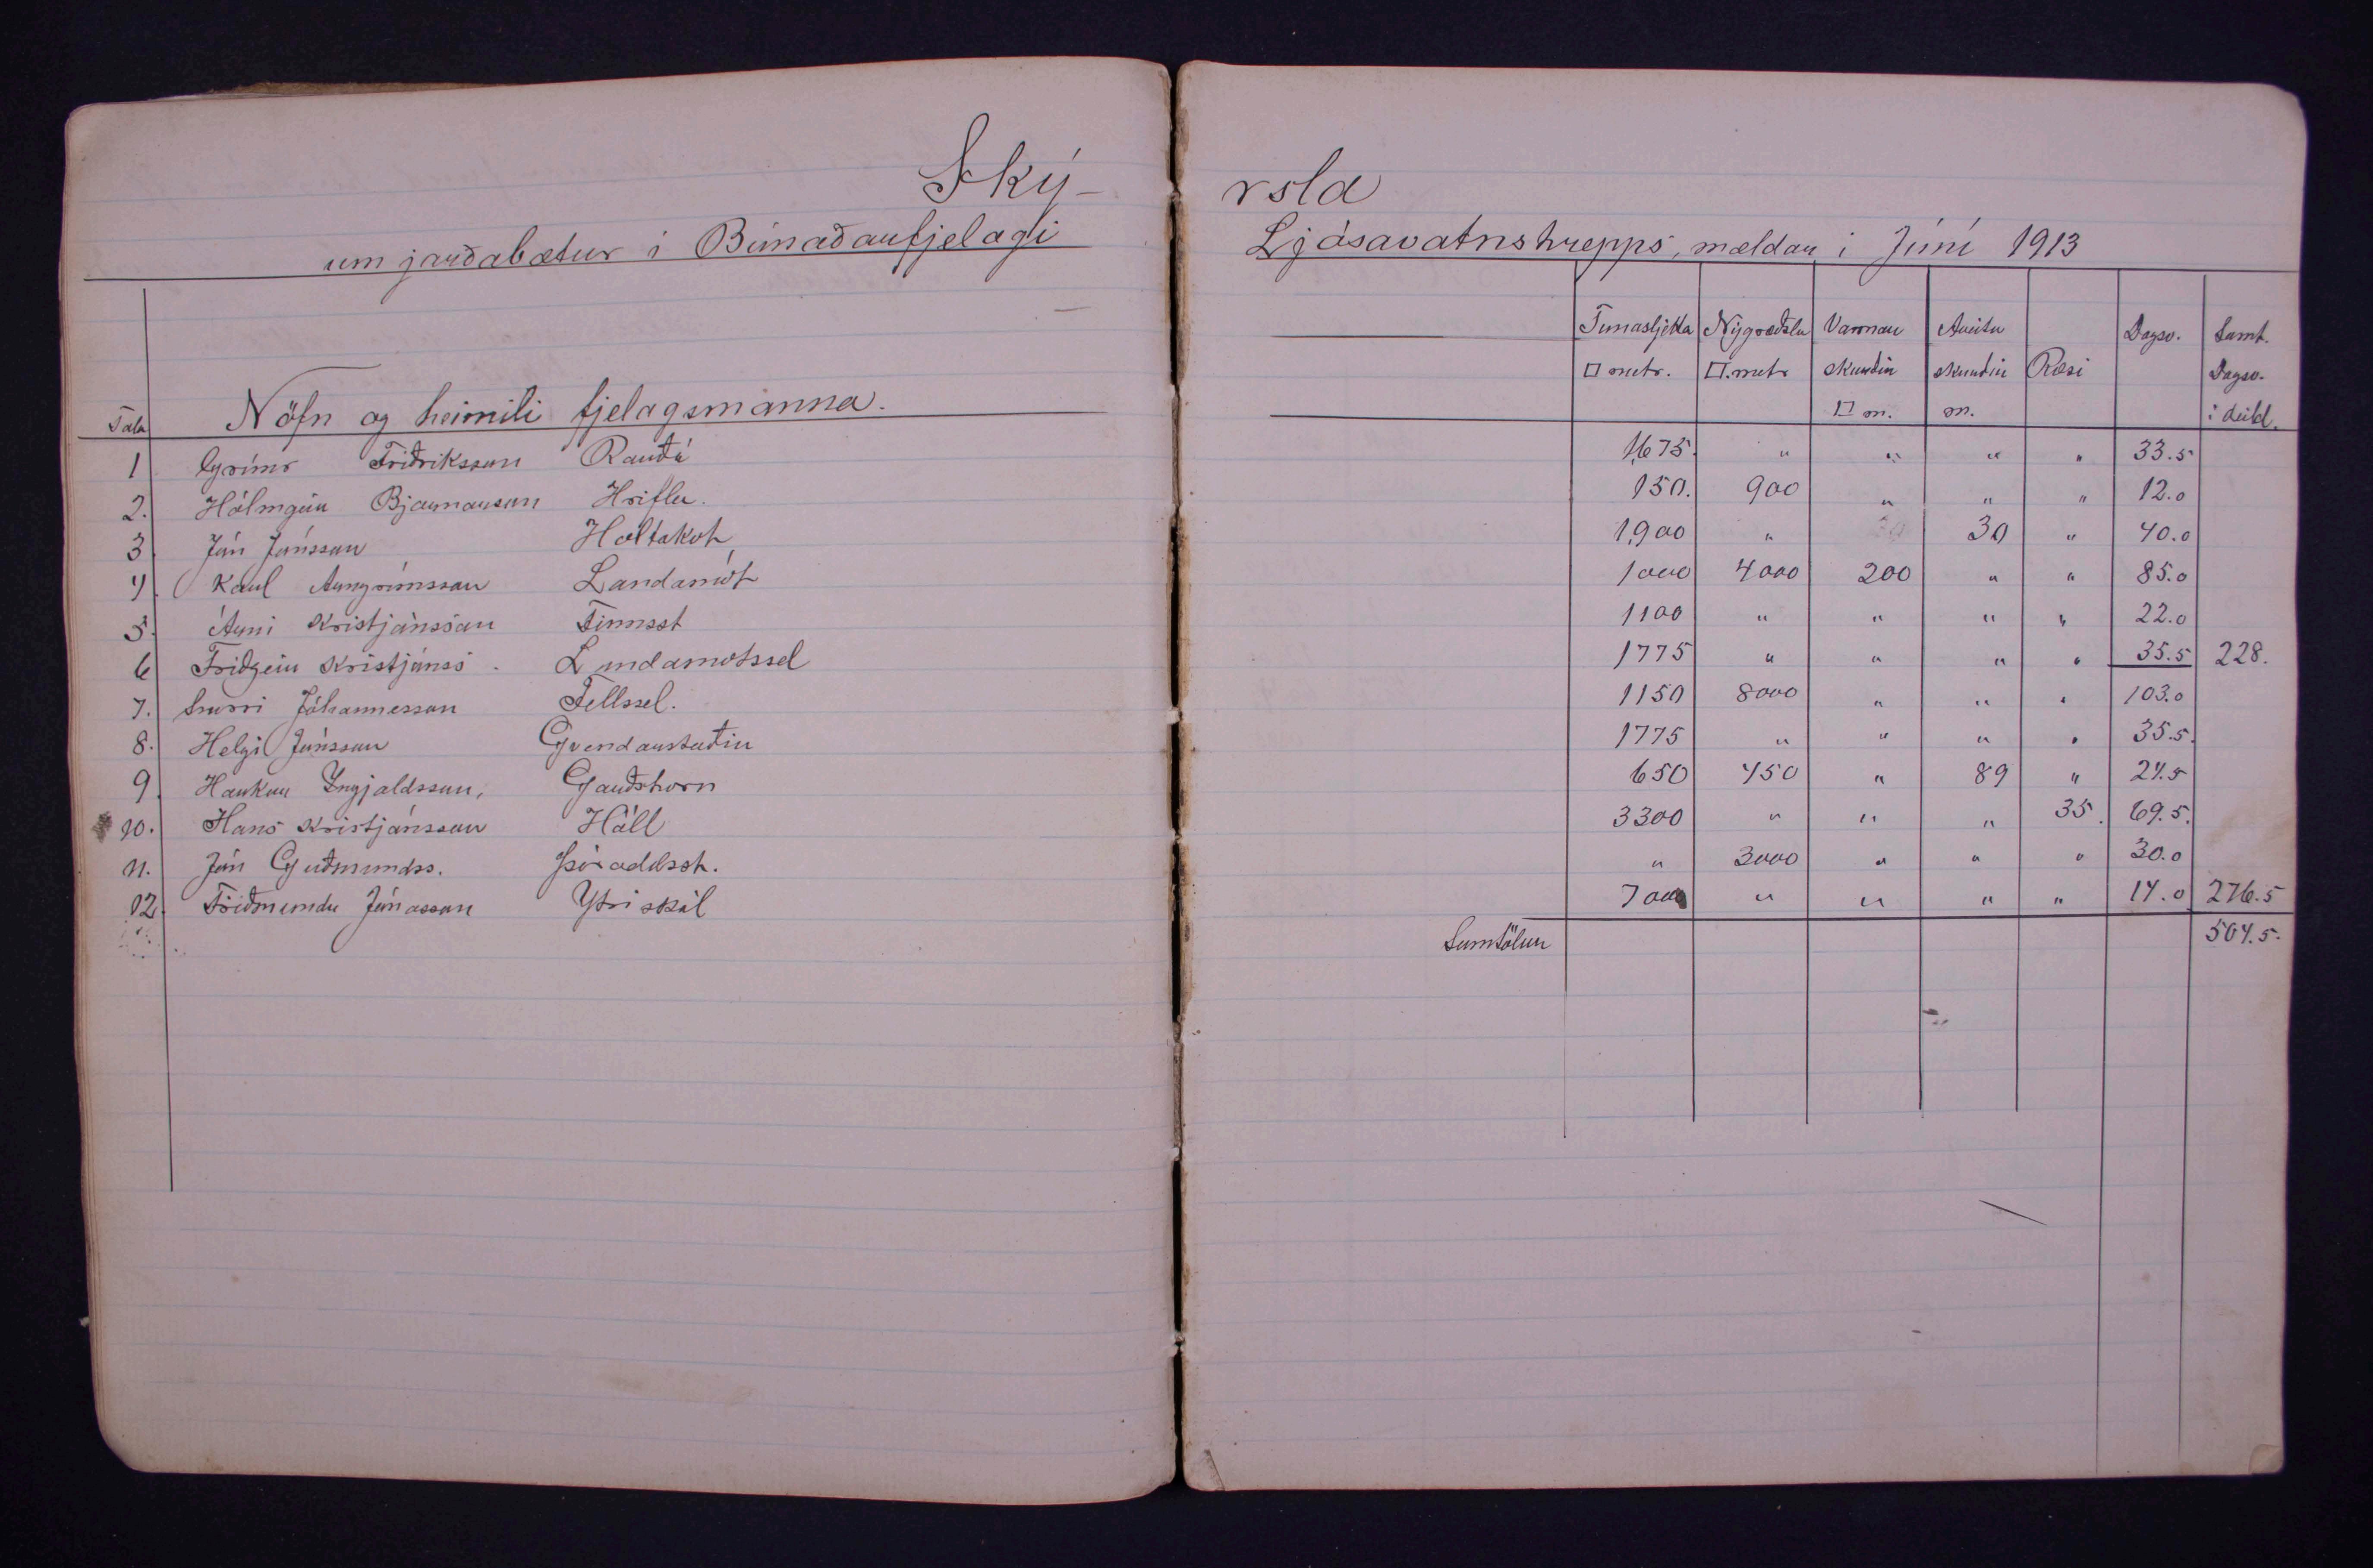 Ský- rsla
um jarðabætur í Búnaðarfjelagi Ljósavatnshrepps, mældar í Júní 1913
Tala Nöfn og heimili fjelagsmanna. Túnasljetta □ metr. Nýgræðsla □.metr Varnar skurðir □ m. Áveitu skurðir m. Ræsi Dagsv. Samt. Dagsv. í deild.
1 Grímr Friðriksson Rauðá 1675. " " " " 33.5
2. Hólmgeir Bjarnarson Hriflu. 150. 900 " " " 12.0
3. Jón Jónsson Holtakot 1,900 " 30 " 40.0
4. Karl Arngrímsson Landamót 1000 4000 200 " " 85.0
5. Árni Kristjánsson Finnsst 1100 " " " " 22.0
6 Friðgeir Kristjánss. Landamótssel 1775 " " " " 35.5 228.
7. Snorri Jóhannesson Fellssel. 1150 8000 " " " 103.0
8. Helgi Jónsson Gvendarstaðir 1775 " " " " 35.5.
9. Haukur Ingjaldsson, Garðshorn 650 450 " 89 " 24.5
10. Hans Kristjánsson Háll 3300 " " " 35. 69.5.
11. Jón Guðmundss. Þóroddsst. " 3000 " " " 30.0
12. Friðmundr Jónasson Ytriskál 700 " " " " 14.0 276.5
Samtölur 504.5.